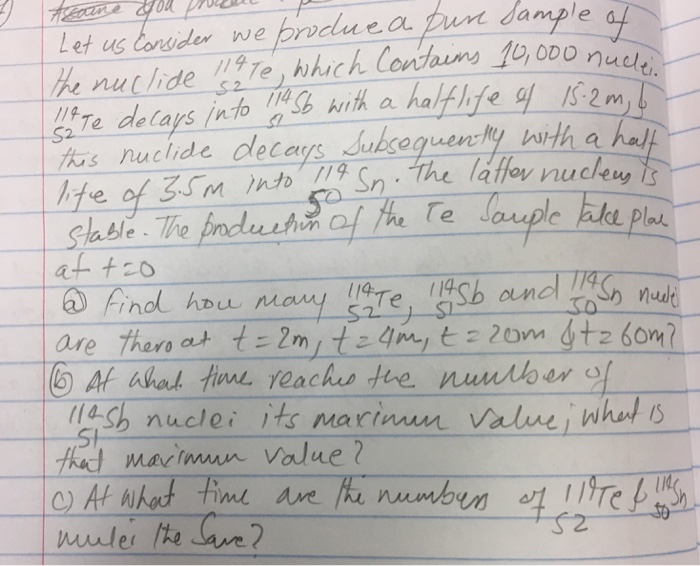 Assume you produce
Let us Consider we produce a pure Sample of
the nuclide 114 52 Te, which Contains 10,000 nuclei.
114 52 Te decays into 114 51 Sb with a half life of 15.2m, &
this nuclide decays Subsequently with a half
life of 3.5M into 114 50 Sn. The latter nucleus is
Stable. The production of the Te Sample take plac
at t=0
(a) find how many 114 52 Te, 114 51 Sb and 114 50 Sn nucli
are there at t=2m, t=4m, t=20m & t=60m?
(b) At what time reaches the number of
114 51 Sb nuclei its maximum value; what is
that maximum value?
c) At what time are the numbers of 114 52 Te & 114 50 Sn
nuclei the Same?